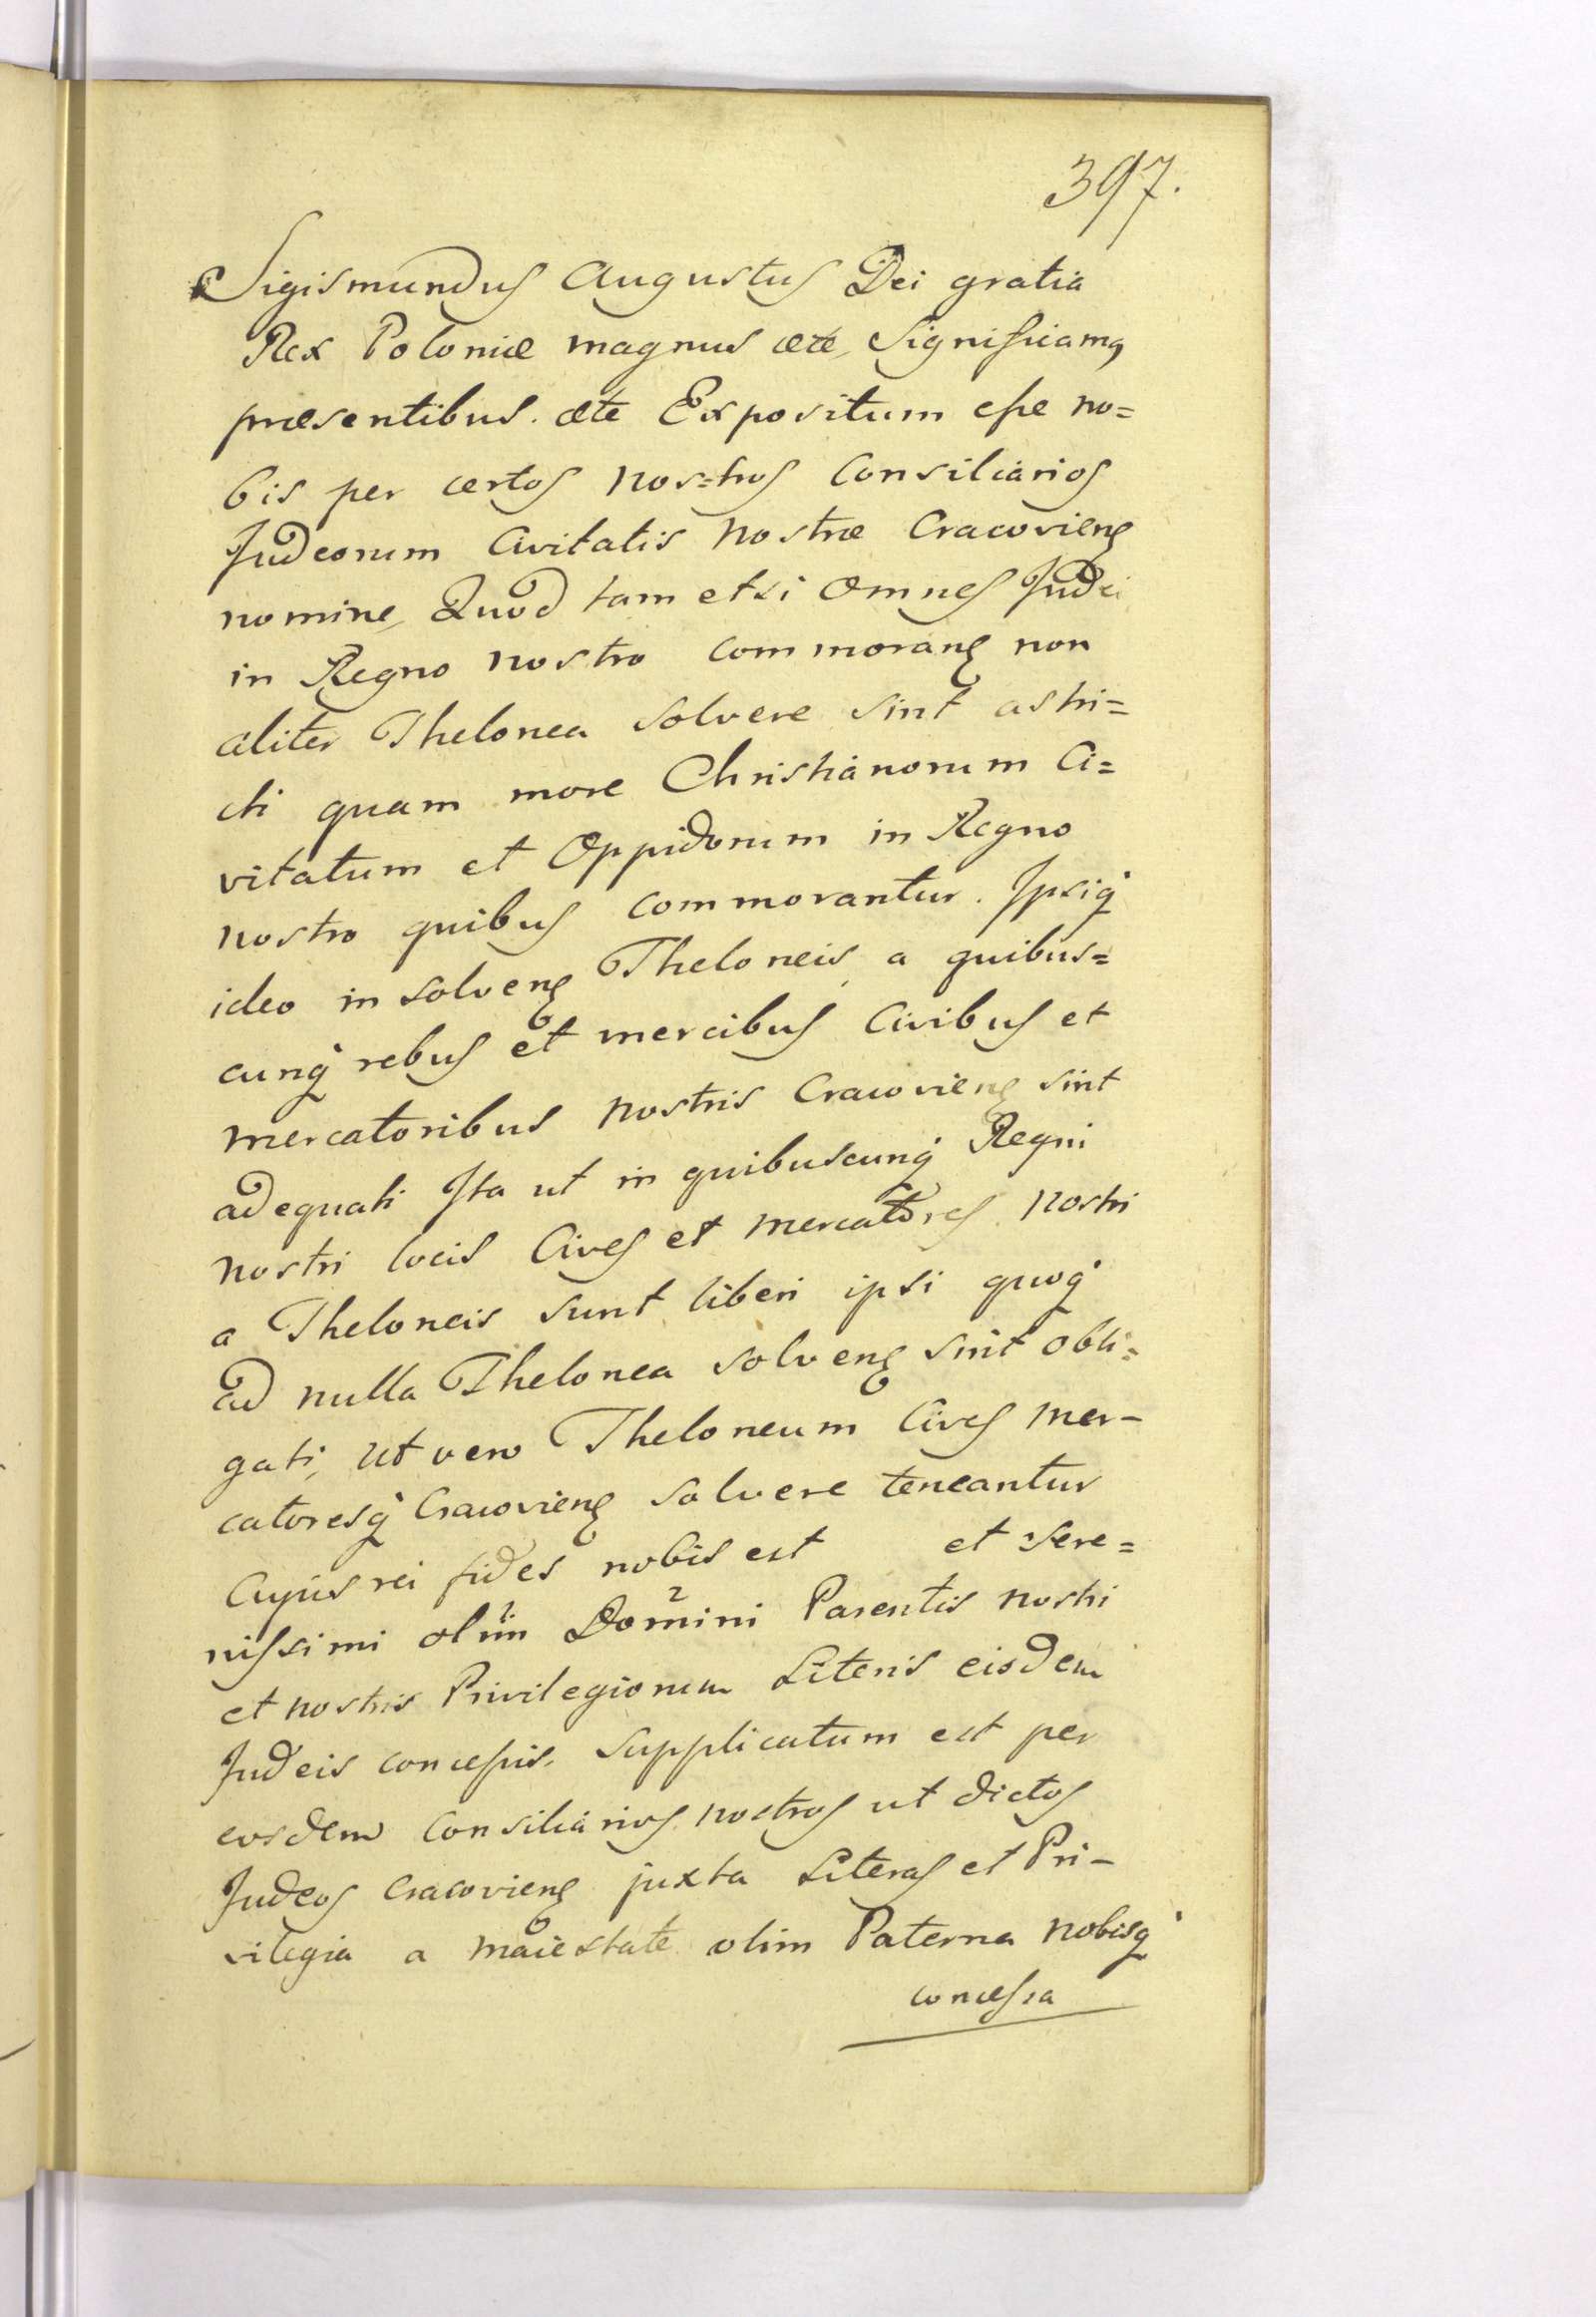 397.
Sigismundus Augustus Dei gratia
Rex Poloniæ magnus ætc, Significamq
præsentibus. ætc Expositum esse no=
bis per certos nos=tros Consiliarios
Judeorum Civitatis nostræ Cracovieng
nomine, Quod tam etsi Omnes Judei
in Regno nostro commorang non
aliter Thelonea solvere sint astri=
cti quam more Christianorum Ci=
vitatum et Oppidorum in Regno
nostro quibus commorantur. Ipsiq
ideo in solveng Theloneis a quibus=
cunq rebus et mercibus Civibus et
mercatoribus nostris Cracovieng sint
adequati Ita ut in quibuscunq Regni
nostri locis Cives et mercatores nostri
a Theloneis sunt liberi ipsi quoq
ad nulla Thelonea solveng sint obli=
gati, Ut vero Theloneum Cives mer-
catoresq Cracovieng solvere teneantur
Cujus rei fides nobis est et Sere=
nissimi olim Domini Parentis nostri
et nostris Privilegiorum Literis eisdem
Judeis concessis. Supplicatum est per
eosdem Consiliarios nostros ut dictos
Judeos Cracovieng juxta Literas et Pri-
vilegia a maiestate olim Paterna nobisq
concessa